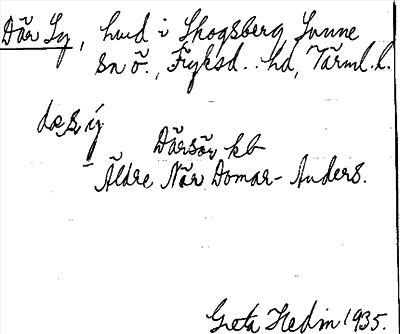 Där Sy, hmd i Skogsberg, Sunne
sn ö., Fryksd. hd, Värml. l.
dæ̨ṣ ý
Därsöy kb
Äldre När Domar-Anders.
Greta Hedin 1935.